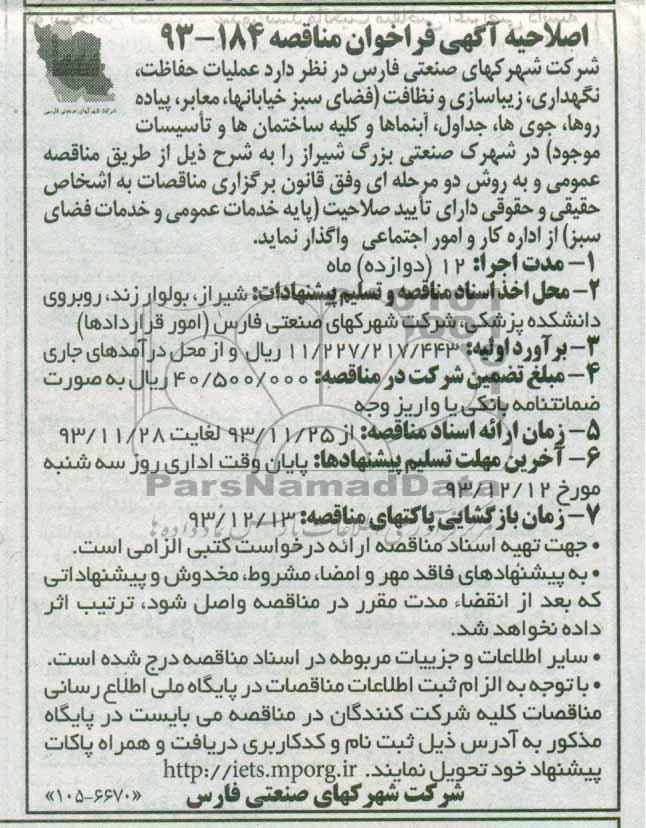 اصلاحیه آگهی فراخوان مناقصه ۱۸۴-۹۳
شرکت شهرکهای صنعتی فارس در نظر دارد عملیات حفاظت،
نگهداری، زیباسازی و نظافت (فضای سبز خیابانها، معابر، پیاده
شرکت شهرکهای صنعتی فارس
روها، جوی ها، جداول، آبنماها و کلیه ساختمان ها و تأسیسات
موجود) در شهرک صنعتی بزرگ شیراز را به شرح ذیل از طریق مناقصه
عمومی و به روش دو مرحله ای وفق قانون برگزاری مناقصات به اشخاص
حقیقی و حقوقی دارای تأیید صلاحیت (پایه خدمات عمومی و خدمات فضای
سبز) از اداره کار و امور اجتماعی واگذار نماید.
۱- مدت اجرا: ۱۲ (دوازده) ماه
۲- محل اخذ اسناد مناقصه و تسلیم پیشنهادات: شیراز، بولوار زند، روبروی
دانشکده پزشکی، شرکت شهرکهای صنعتی فارس (امور قراردادها)
۳- برآورد اولیه: ۱۱/۲۲۷/۲۱۷/۴۴۳ ریال و از محل درآمدهای جاری
۴- مبلغ تضمین شرکت در مناقصه: ۴۰/۵۰۰/۰۰۰ ریال به صورت
ضمانتنامه بانکی یا واریز وجه
۵- زمان ارائه اسناد مناقصه: از ۹۳/۱۱/۲۵ لغایت ۹۳/۱۱/۲۸
۶- آخرین مهلت تسلیم پیشنهادها: پایان وقت اداری روز سه شنبه
مورخ ۹۳/۱۲/۱۲
ParsNamadData
۷- زمان بازگشایی پاکتهای مناقصه: ۹۳/۱۲/۱۳
• جهت تهیه اسناد مناقصه ارائه درخواست کتبی الزامی است.
• به پیشنهادهای فاقد مهر و امضا، مشروط، مخدوش و پیشنهاداتی
که بعد از انقضاء مدت مقرر در مناقصه واصل شود، ترتیب اثر
داده نخواهد شد.
• سایر اطلاعات و جزییات مربوطه در اسناد مناقصه درج شده است.
• با توجه به الزام ثبت اطلاعات مناقصات در پایگاه ملی اطلاع رسانی
مناقصات کلیه شرکت کنندگان در مناقصه می بایست در پایگاه
مذکور به آدرس ذیل ثبت نام و کدکاربری دریافت و همراه پاکات
پیشنهاد خود تحویل نمایند. http://iets.mporg.ir
شرکت شهرکهای صنعتی فارس «۱۰۵-۶۶۷۰»